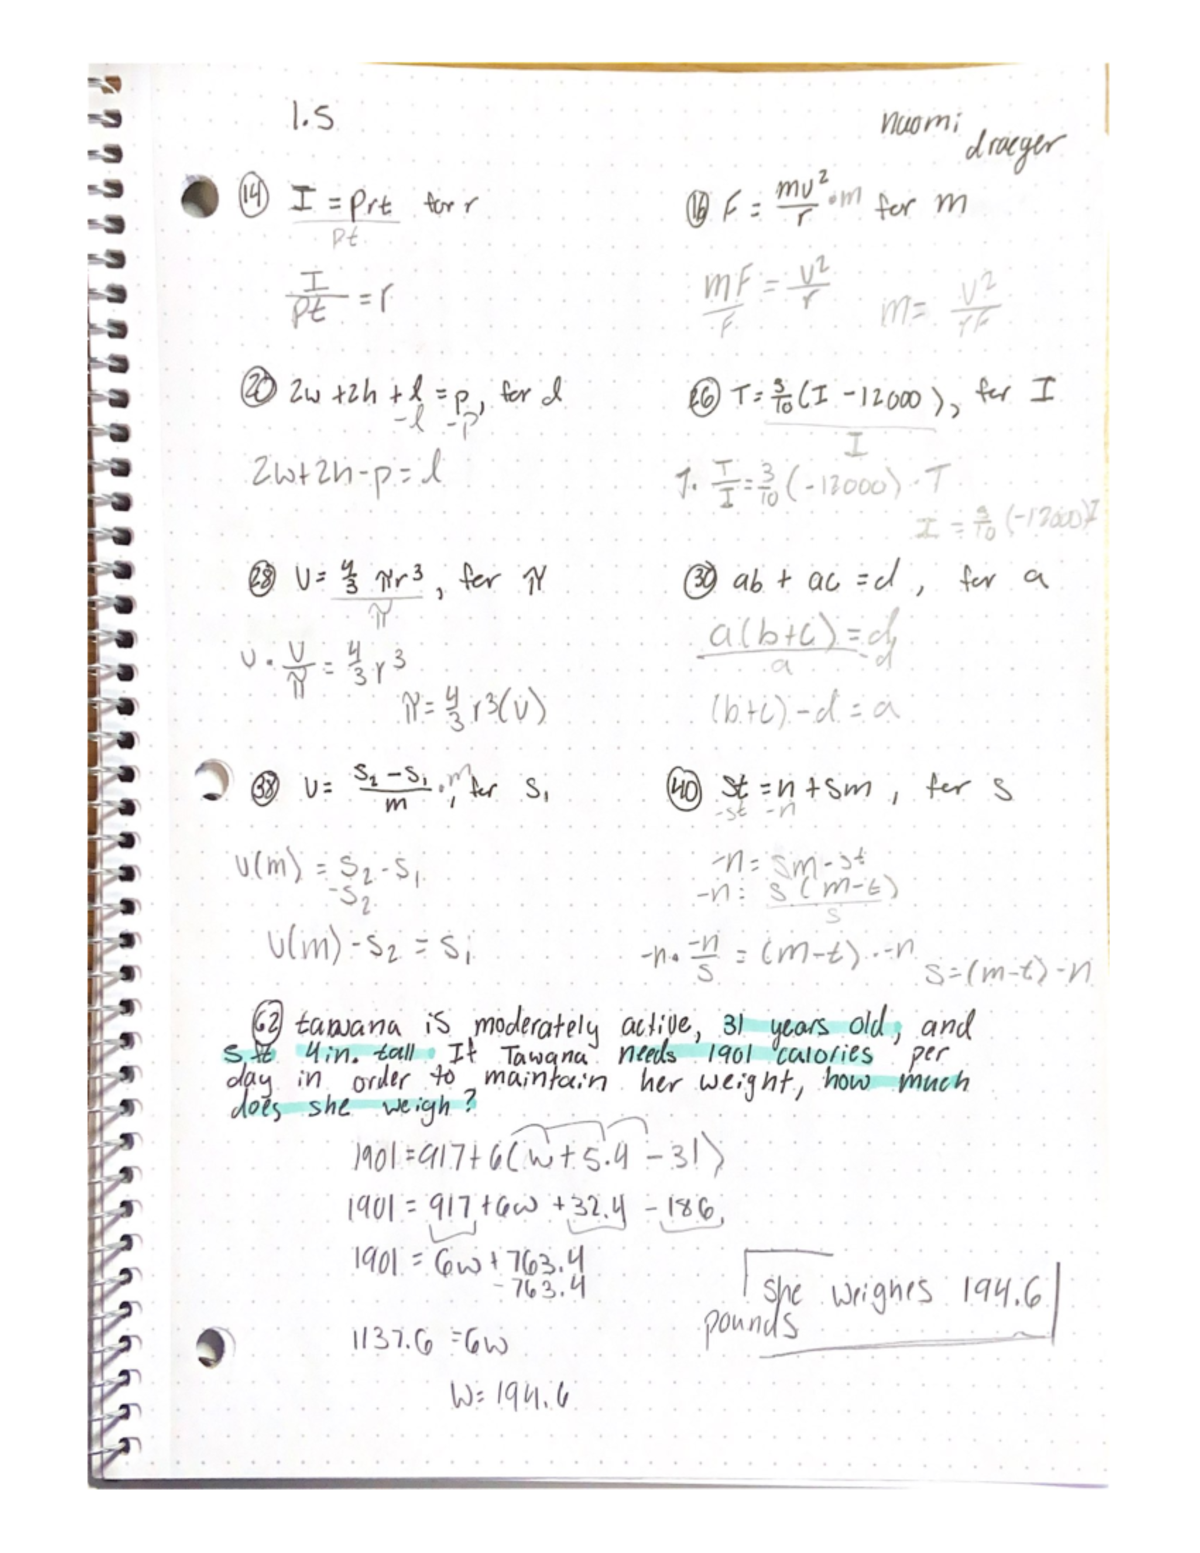 1.5
naomi
draeger
(14) I = prt for r
pt
I/pt = r
(16) F = mv²/r · m for m
mF/F = v²/r
m = v²/rF
(20) 2w + 2h + l = p, for l
-l -p
2w+2h-p = l
(26) T = 3/10 (I - 12000), for I
I
T/I = 3/10 (-12000) · T
I = 3/10 (-12000)I
(28) V = 4/3 πr³, for π
π
V · V/π = 4/3 r³
π = 4/3 r³(V)
(30) ab + ac = d, for a
a(b+c) = d
a -d
(b+c) - d = a
(38) v = s₂ - s₁/m · m, for s₁
v(m) = s₂ - s₁
-s₂
v(m) - s₂ = s₁
(40) st = n + sm, for s
-st -n
-n = sm - st
-n = s(m-t)
s
-n · -n/s = (m-t) · -n
s = (m-t) - n
(62) tawana is moderately active, 31 years old, and
5 ft 4 in. tall. If Tawana needs 1901 calories per
day in order to maintain her weight, how much
does she weigh?
1901 = 917 + 6(w + 5.4 - 31)
1901 = 917 + 6w + 32.4 - 186
1901 = 6w + 763.4
- 763.4
1137.6 = 6w
w = 194.6
she weighes 194.6
pounds